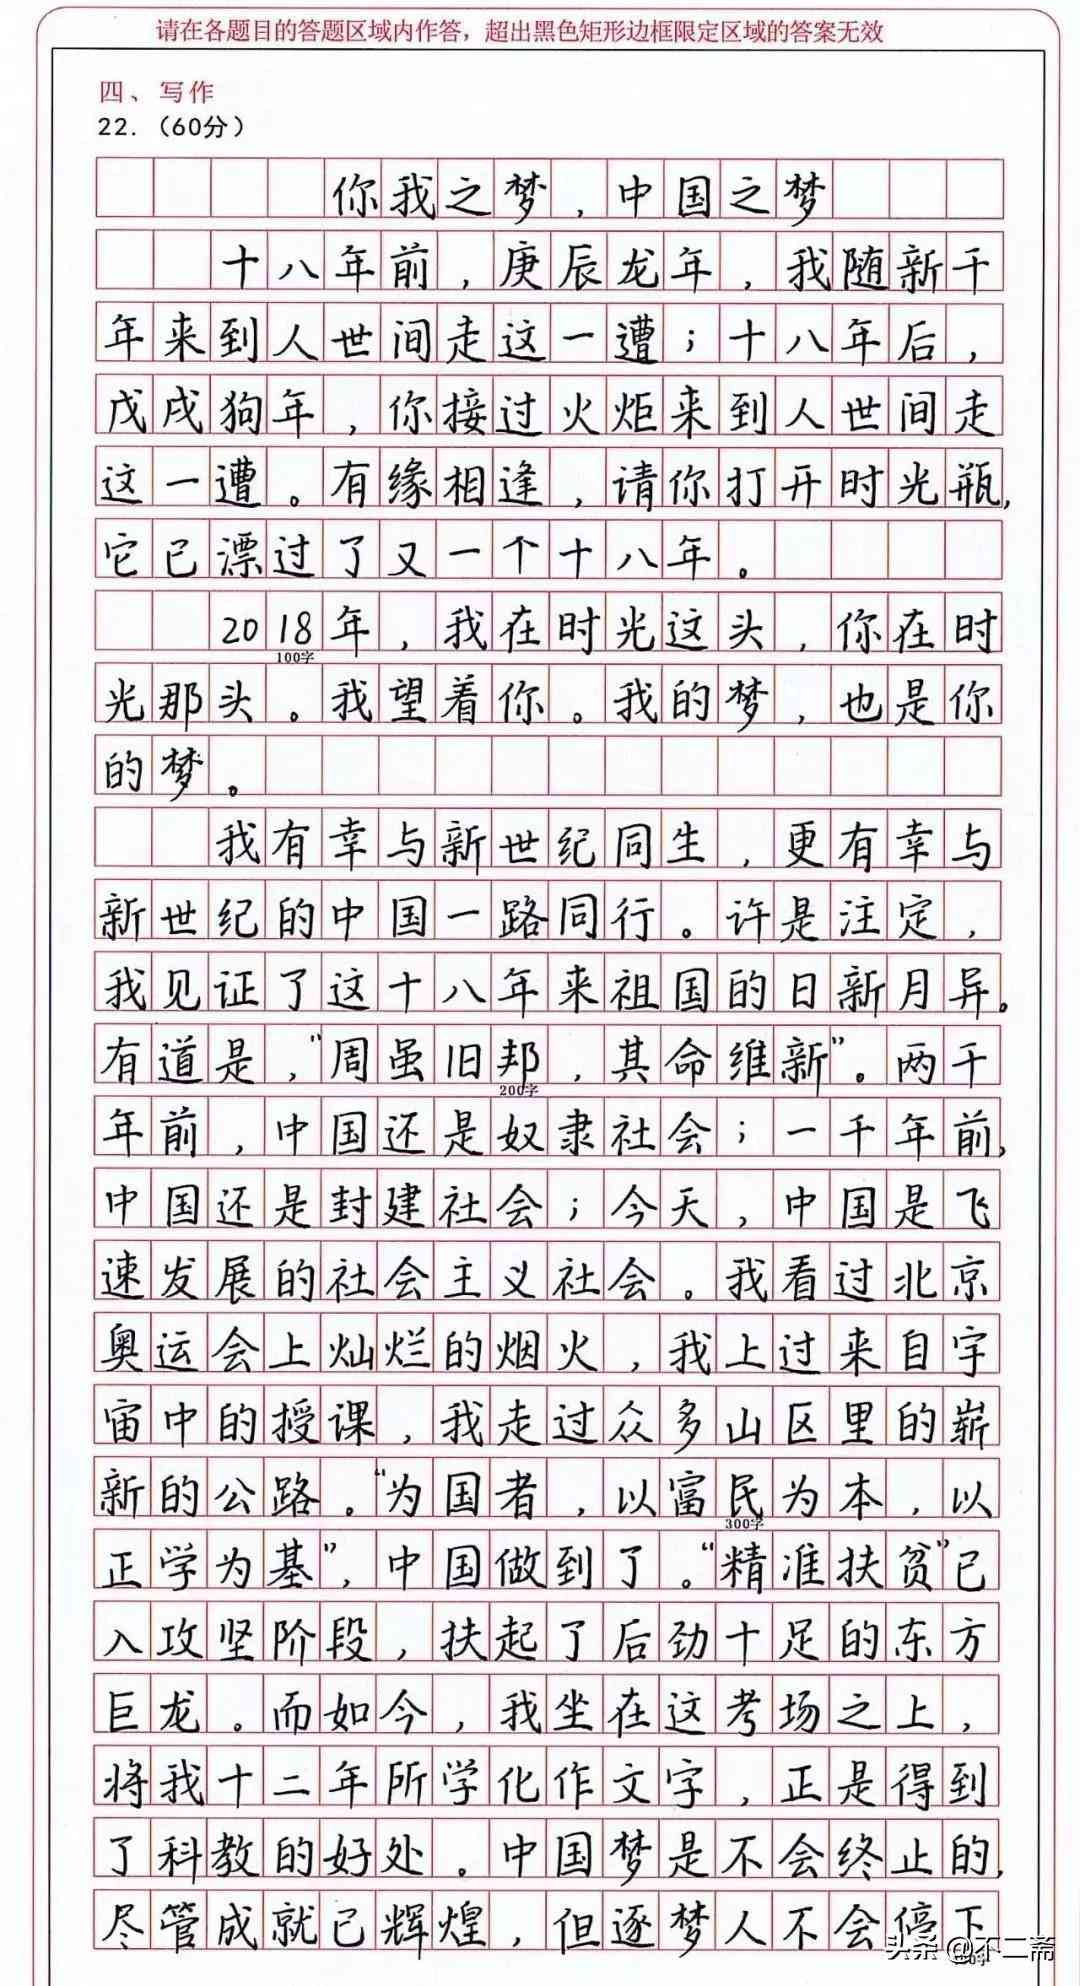 请在各题目的答题区域内作答，超出黑色矩形边框限定区域的答案无效
四、写作
22.（60分）
你我之梦，中国之梦
十八年前，庚辰龙年，我随新千
年来到人世间走这一遭；十八年后，
戊戌狗年，你接过火炬来到人世间走
这一遭。有缘相逢，请你打开时光瓶，
它已漂过了又一个十八年。
2018年，我在时光这头，你在时
100字
光那头。我望着你。我的梦，也是你
的梦。
我有幸与新世纪同生，更有幸与
新世纪的中国一路同行。许是注定，
我见证了这十八年来祖国的日新月异。
有道是，“周虽旧邦，其命维新”。两千
200字
年前，中国还是奴隶社会；一千年前，
中国还是封建社会；今天，中国是飞
速发展的社会主义社会。我看过北京
奥运会上灿烂的烟火，我上过来自宇
宙中的授课，我走过众多山区里的崭
新的公路。“为国者，以富民为本，以
300字
正学为基”，中国做到了。“精准扶贫”已
入攻坚阶段，扶起了后劲十足的东方
巨龙。而如今，我坐在这考场之上，
将我十二年所学化作文字，正是得到
了科教的好处。中国梦是不会终止的，
尽管成就已辉煌，但逐梦人不会停下
头条 @不二斋